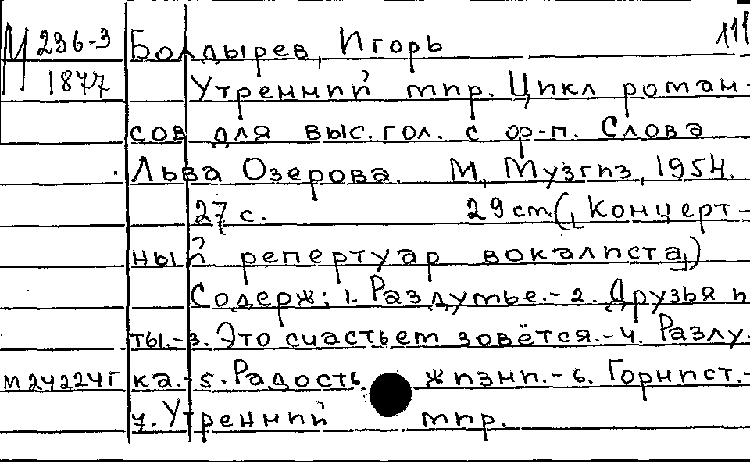 М 236-3 Болдырев, Игорь 111
1877 Утренний мир. Цикл роман-
сов для выс. гол. с ф-п. Слова
Льва Озерова. М, Музгиз, 1954.
27 с. 29 cm (Концерт-
ный репертуар вокалиста)
Содерж: 1. Раздумье.-2. Друзья и
ты.-3. Это счастьем зовётся.-4. Разлу-
М24224г ка.-5. Радость жизни.-6. Горнист.-
7. Утренний мир.